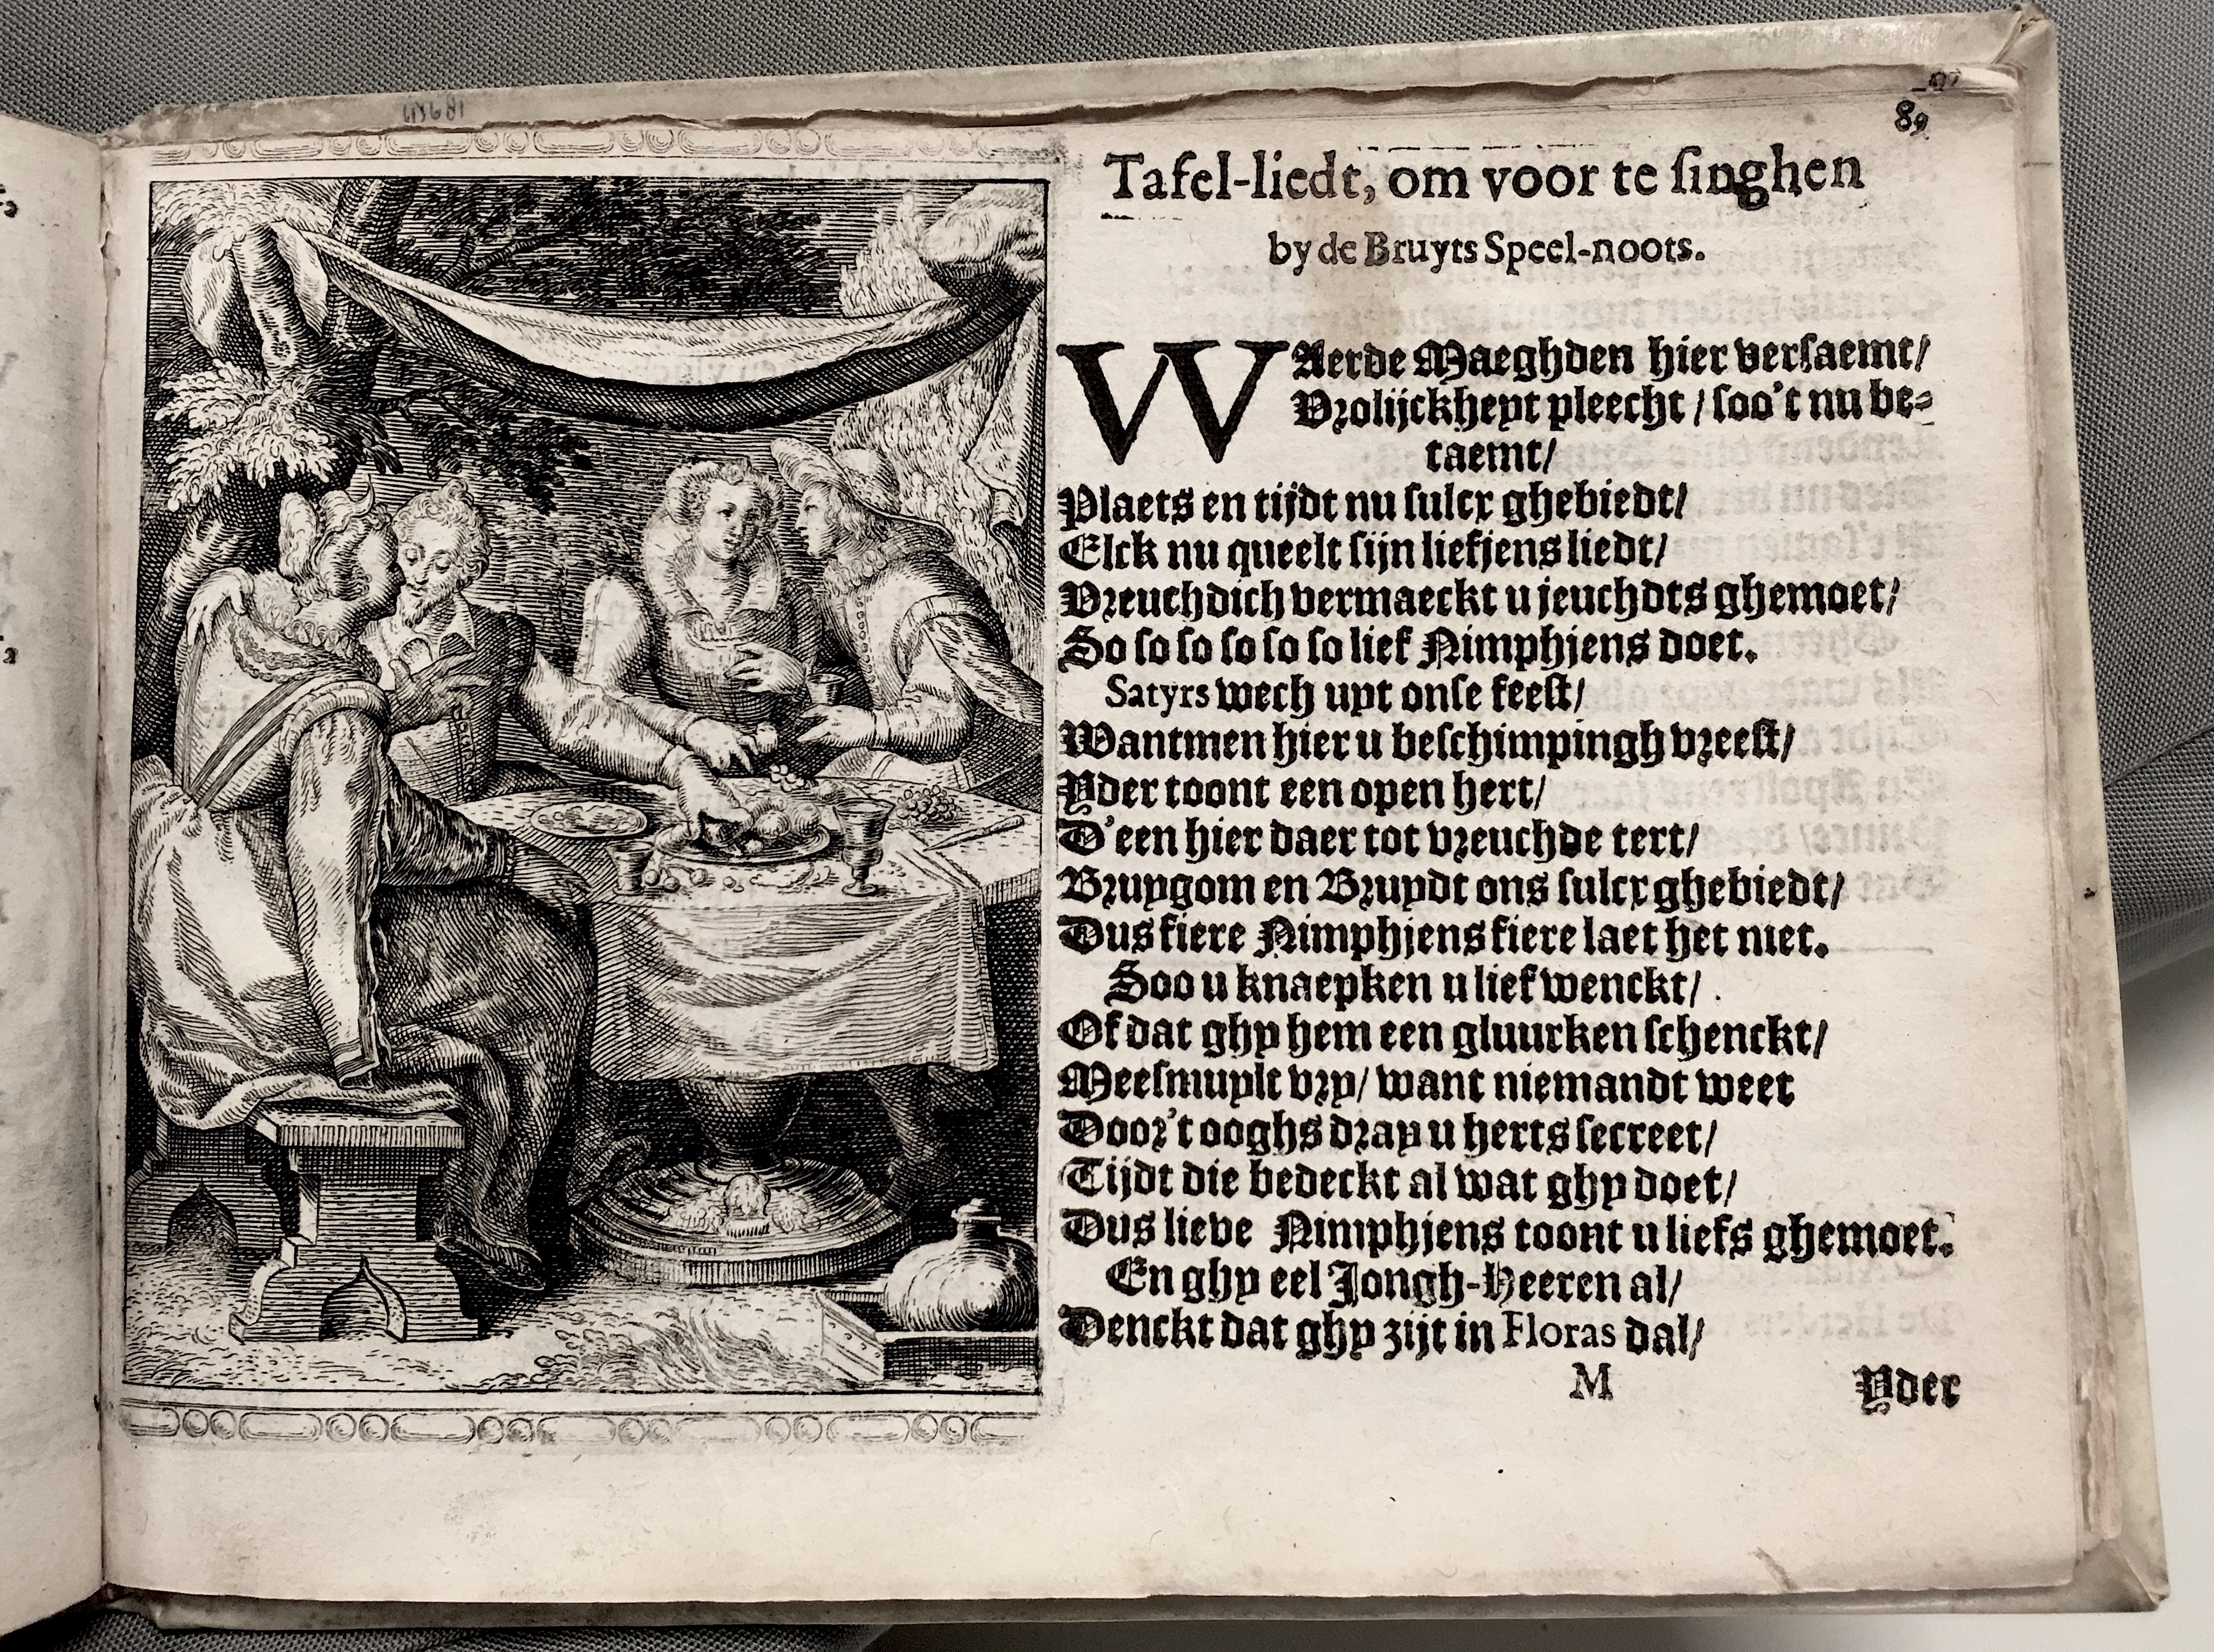 89
Tafel-liedt, om voor te ſinghen
by de Bruyts Speel-noots.
WAerde Maeghden hier verſaemt/
Vrolijckheyt pleecht / ſoo't nu be-
taemt/
Plaets en tijdt nu ſulcx ghebiedt/
Elck nu queelt ſijn liefjens liedt/
Vreuchdich vermaeckt u jeuchdts ghemoet/
So ſo ſo ſo ſo ſo lief Nimphjens doet.
Satyrs wech uyt onſe feeſt/
Wantmen hier u beſchimpingh vreeſt/
Yder toont een open hert/
D'een hier daer tot vreuchde tert/
Bruygom en Bruydt ons ſulcx ghebiedt/
Dus fiere Nimphjens fiere laet het niet.
Soo u knaepken u lief wenckt/
Of dat ghy hem een gluurken ſchenckt/
Meeſmuylt vry/ want niemandt weet
Door't ooghs dray u herts ſecreet/
Tijdt die bedeckt al wat ghy doet/
Dus lieve Nimphjens toont u liefs ghemoet.
En ghy eel Jongh-Heeren al/
Denckt dat ghy zijt in Floras dal/
M
Yder